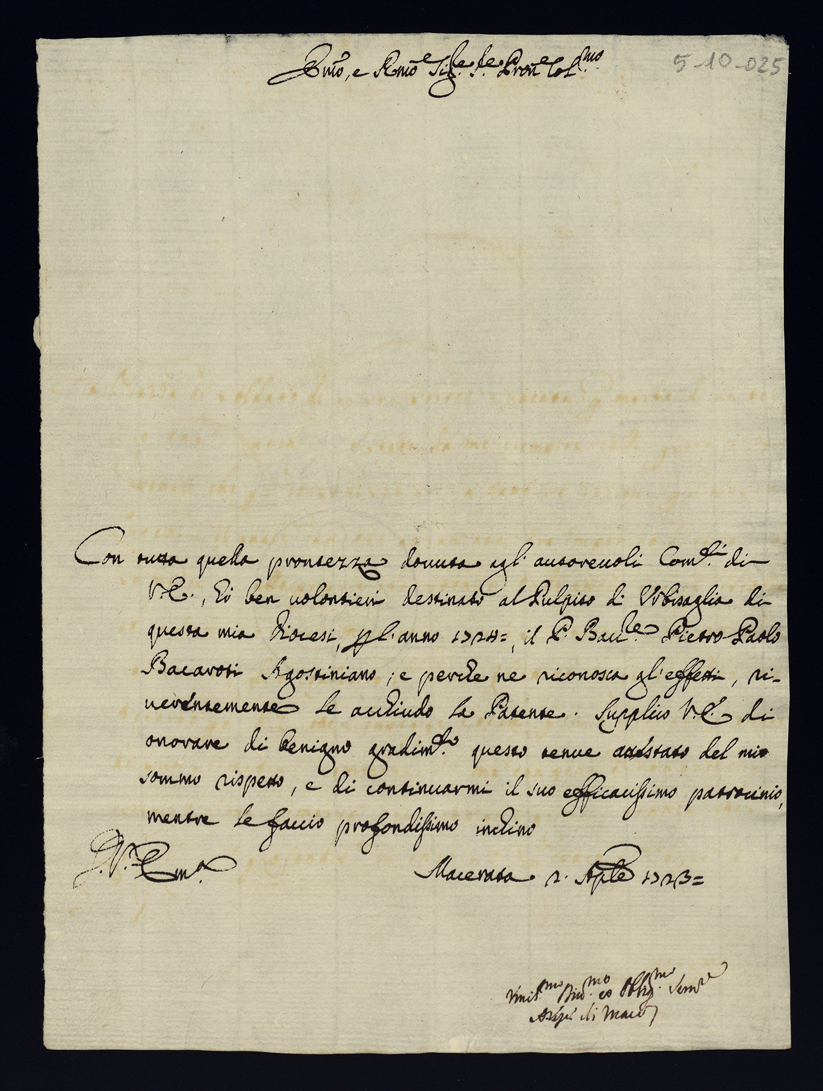 Em̃o, e Rmõ Sigr. Sr. Prõne Colmo.
5-10-025
Con tutta quella prontezza dovuta agl' autorevoli Comdi. di
V.E., hò ben volontieri destinato al Pulpito di Urbisaglia di
questa mia Diocesi, p l'anno 1724=, il P. Baccre. Pietro Paolo
Bacaroti Agostiniano; e perche ne riconosca gl'effetti, ri-
verentemente le acchiudo la Patente. Supplico V.E. di
onorare di benigno gradimto. questo tenue attestato del mio
sommo rispetto, e di continuarmi il suo efficacissimo patrocinio,
mentre le faccio profondissimo inchino
D. V. Emã.
Macerata 2. Aple 1723=
Umilmo Divmo ed Obblgmo. Servre
di Macer